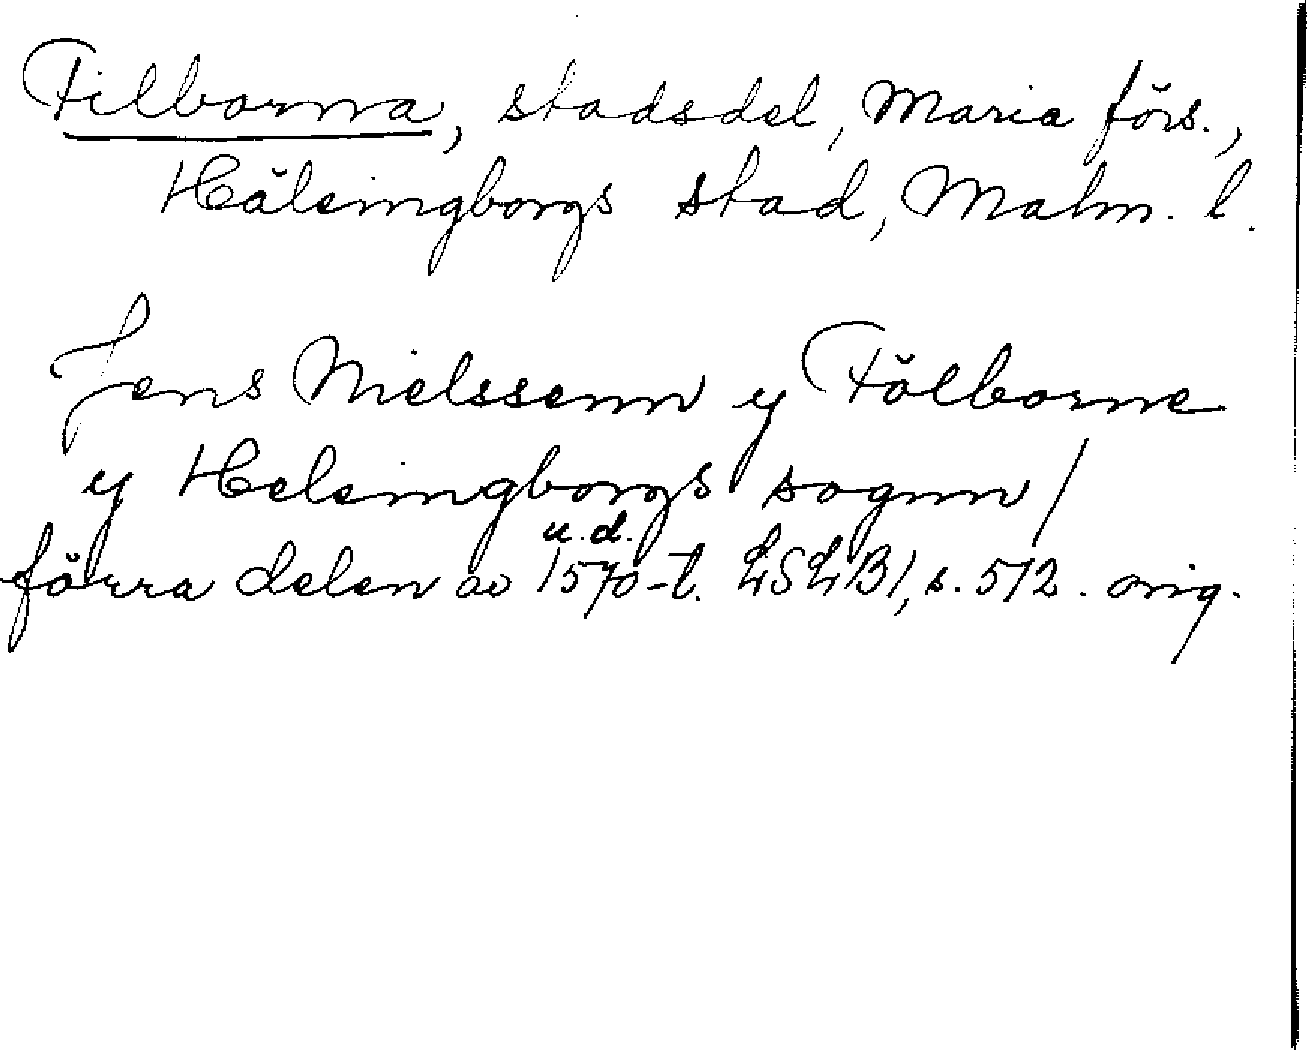 Filborna, stadsdel, Maria förs.,
Hälsingborgs stad, Malm. l.
Jens Nielssenn y Fölborne
y Helsingborgs sognn /
u.d.
förra delen av 1570-t. LSLB 1, s. 512. orig.